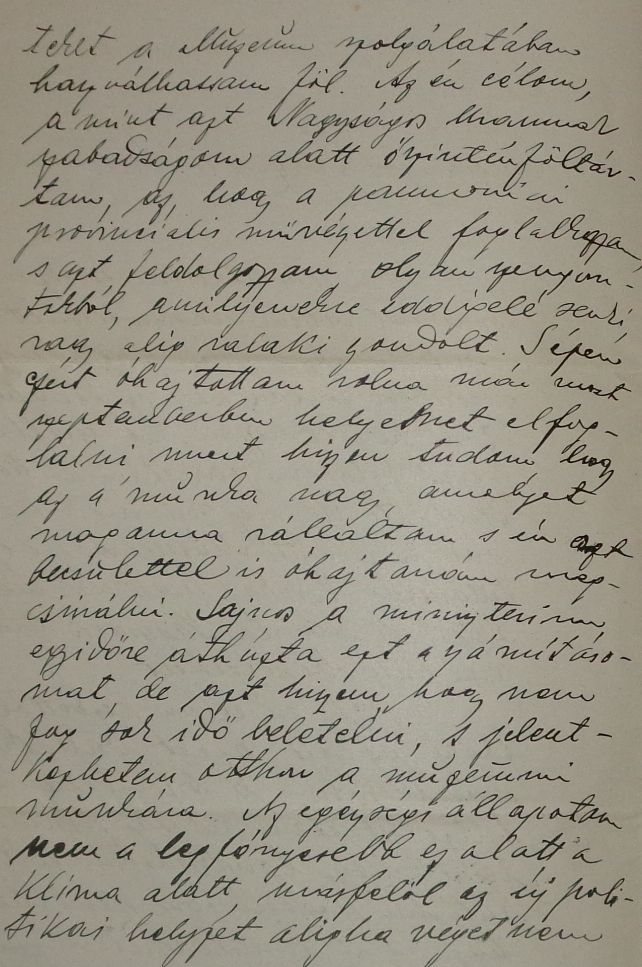 teket a Muzeum szolgálatában
használhassam föl. Az én célom,
a mint azt Nagyságos Urammal
szabadságom alatt őszintén föltár-
tam, az, hogy a pannoniai
provinciális művészettel foglalkozzam,
s azt feldolgozzam olyan szempon-
tokból, amilyenekre eddigelé senki,
vagy alig valaki gondolt. S épen
ezért óhajtottam volna már most
szeptemberben helyemet elfog-
lalni mert hiszen tudom hogy
az a munka nagy amelyet
magamra vállaltam s én azt
becsülettel is óhajtanám meg-
csinálni. Sajnos a miniszterium
egyidőre áthúzta ezt a számításo-
mat, de azt hiszem, hogy nem
fog sok idő beletelni, s jelent-
kezhetem otthon a múzeumi
munkára. Az egészségi állapotom
nem a legfényesebb ez alatt a
Klima alatt, másfelől az új poli-
tikai helyzet aligha véget nem